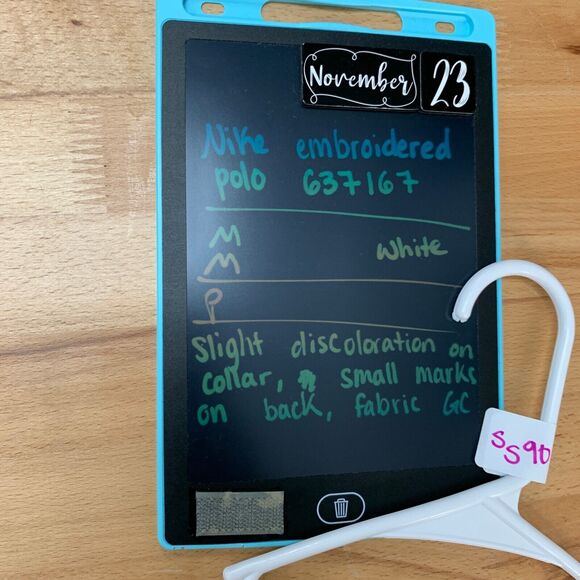 November 23
Nike embroidered
polo 637167
M White
M
P
Slight discoloration on
collar, small marks
on back, fabric GC
SS90